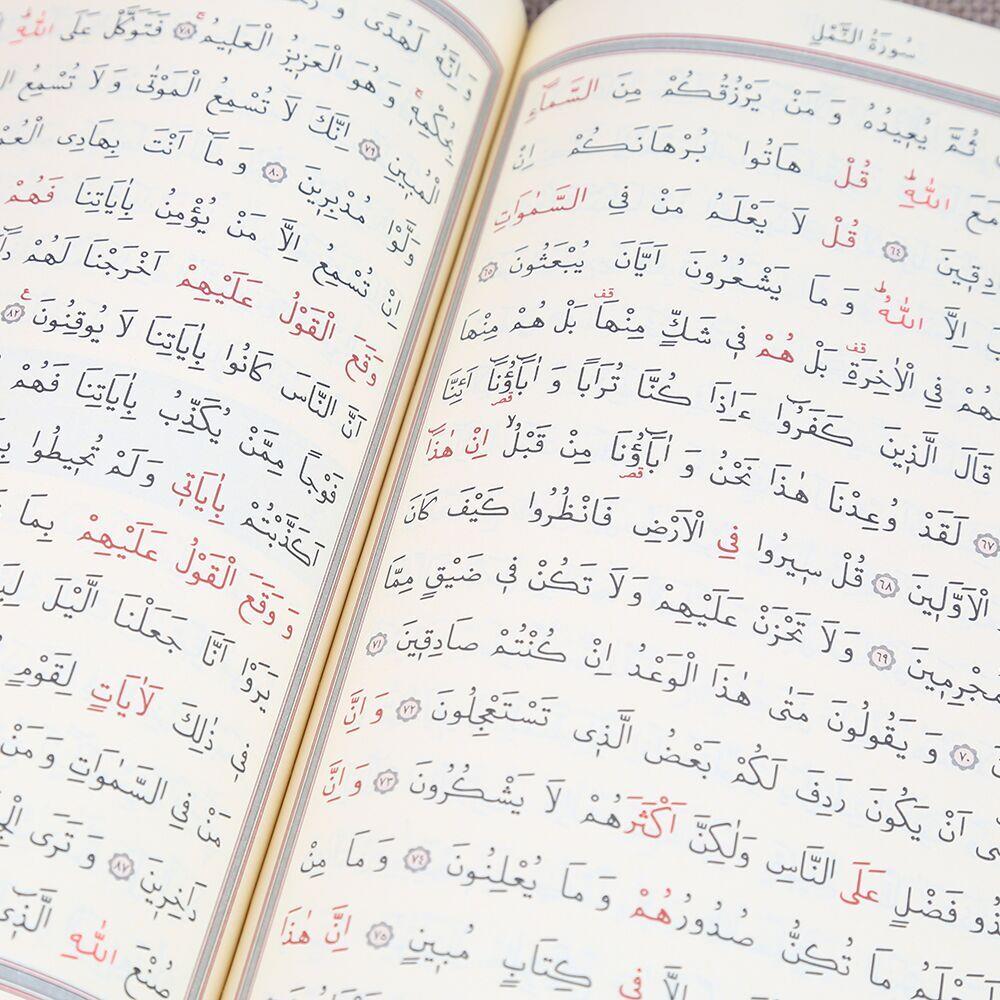 سُورَةُ النَّمْلِ
ثُمَّ يُعِيدُهُ وَ مَنْ يَرْزُقُكُمْ مِنَ السَّمَٓاءِ
اللّٰهِؕ قُلْ هَاتُوا بُرْهَانَكُمْ اِنْ
﴿٦٤﴾ قُلْ لَا يَعْلَمُ مَنْ فِي السَّمٰوَاتِ
اِلَّا اللّٰهُؕ وَ مَا يَشْعُرُونَ اَيَّانَ يُبْعَثُونَ ﴿٦٥﴾
فِي الْاٰخِرَةِ بَلْ هُمْ فٖي شَكٍّ مِنْهَا بَلْ هُمْ مِنْهَا
قَالَ الَّذٖينَ كَفَرُٓوا ءَاِذَا كُنَّا تُرَابًا وَ اٰبَٓاؤُ۬نَٓا اَئِنَّا
﴿٦٧﴾ لَقَدْ وُعِدْنَا هٰذَا نَحْنُ وَ اٰبَٓاؤُ۬نَا مِنْ قَبْلُۙ اِنْ هٰذَٓا
الْاَوَّلٖينَ ﴿٦٨﴾ قُلْ سٖيرُوا فِي الْاَرْضِ فَانْظُرُوا كَيْفَ كَانَ
﴿٦٩﴾ وَلَا تَحْزَنْ عَلَيْهِمْ وَلَا تَكُنْ فٖي ضَيْقٍ مِمَّا
﴿٧٠﴾ وَ يَقُولُونَ مَتٰى هٰذَا الْوَعْدُ اِنْ كُنْتُمْ صَادِقٖينَ ﴿٧١﴾
اَنْ يَكُونَ رَدِفَ لَكُمْ بَعْضُ الَّذٖي تَسْتَعْجِلُونَ ﴿٧٢﴾ وَ اِنَّ
فَضْلٍ عَلَى النَّاسِ وَلٰكِنَّ اَكْثَرَهُمْ لَا يَشْكُرُونَ ﴿٧٣﴾ وَ اِنَّ
مَا تُكِنُّ صُدُورُهُمْ وَ مَا يُعْلِنُونَ ﴿٧٤﴾ وَ مَا مِنْ
اِلَّا فٖي كِتَابٍ مُبٖينٍ ﴿٧٥﴾ اِنَّ هٰذَا
وَ اِنَّهُ لَهُدًى وَ
بِحُكْمِهٖۚ وَ هُوَ الْعَزٖيزُ الْعَلٖيمُۚ ﴿٧٨﴾ فَتَوَكَّلْ عَلَى اللّٰهِؕ
الْمُبٖينِ ﴿٧٩﴾ اِنَّكَ لَا تُسْمِعُ الْمَوْتٰى وَ لَا تُسْمِعُ
وَلَّوْا مُدْبِرٖينَ ﴿٨٠﴾ وَ مَٓا اَنْتَ بِهَادِي
اِنْ تُسْمِعُ اِلَّا مَنْ يُؤْمِنُ بِاٰيَاتِنَا فَهُمْ
وَقَعَ الْقَوْلُ عَلَيْهِمْ اَخْرَجْنَا لَهُمْ
اَنَّ النَّاسَ كَانُوا بِاٰيَاتِنَا لَا يُوقِنُونَ ﴿٨٢﴾
فَوْجًا مِمَّنْ يُكَذِّبُ بِاٰيَاتِنَا فَهُمْ
اَكَذَّبْتُمْ بِاٰيَاتٖي وَلَمْ تُحٖيطُوا
وَ وَقَعَ الْقَوْلُ عَلَيْهِمْ بِمَا
يَرَوْا اَنَّا جَعَلْنَا الَّيْلَ
فٖي ذٰلِكَ لَاٰيَاتٍ لِقَوْمٍ
مَنْ فِي السَّمٰوَاتِ وَ مَنْ
دَاخِرٖينَ ﴿٨٧﴾ وَ تَرَى
صُنْعَ اللّٰهِ الَّذٖٓي